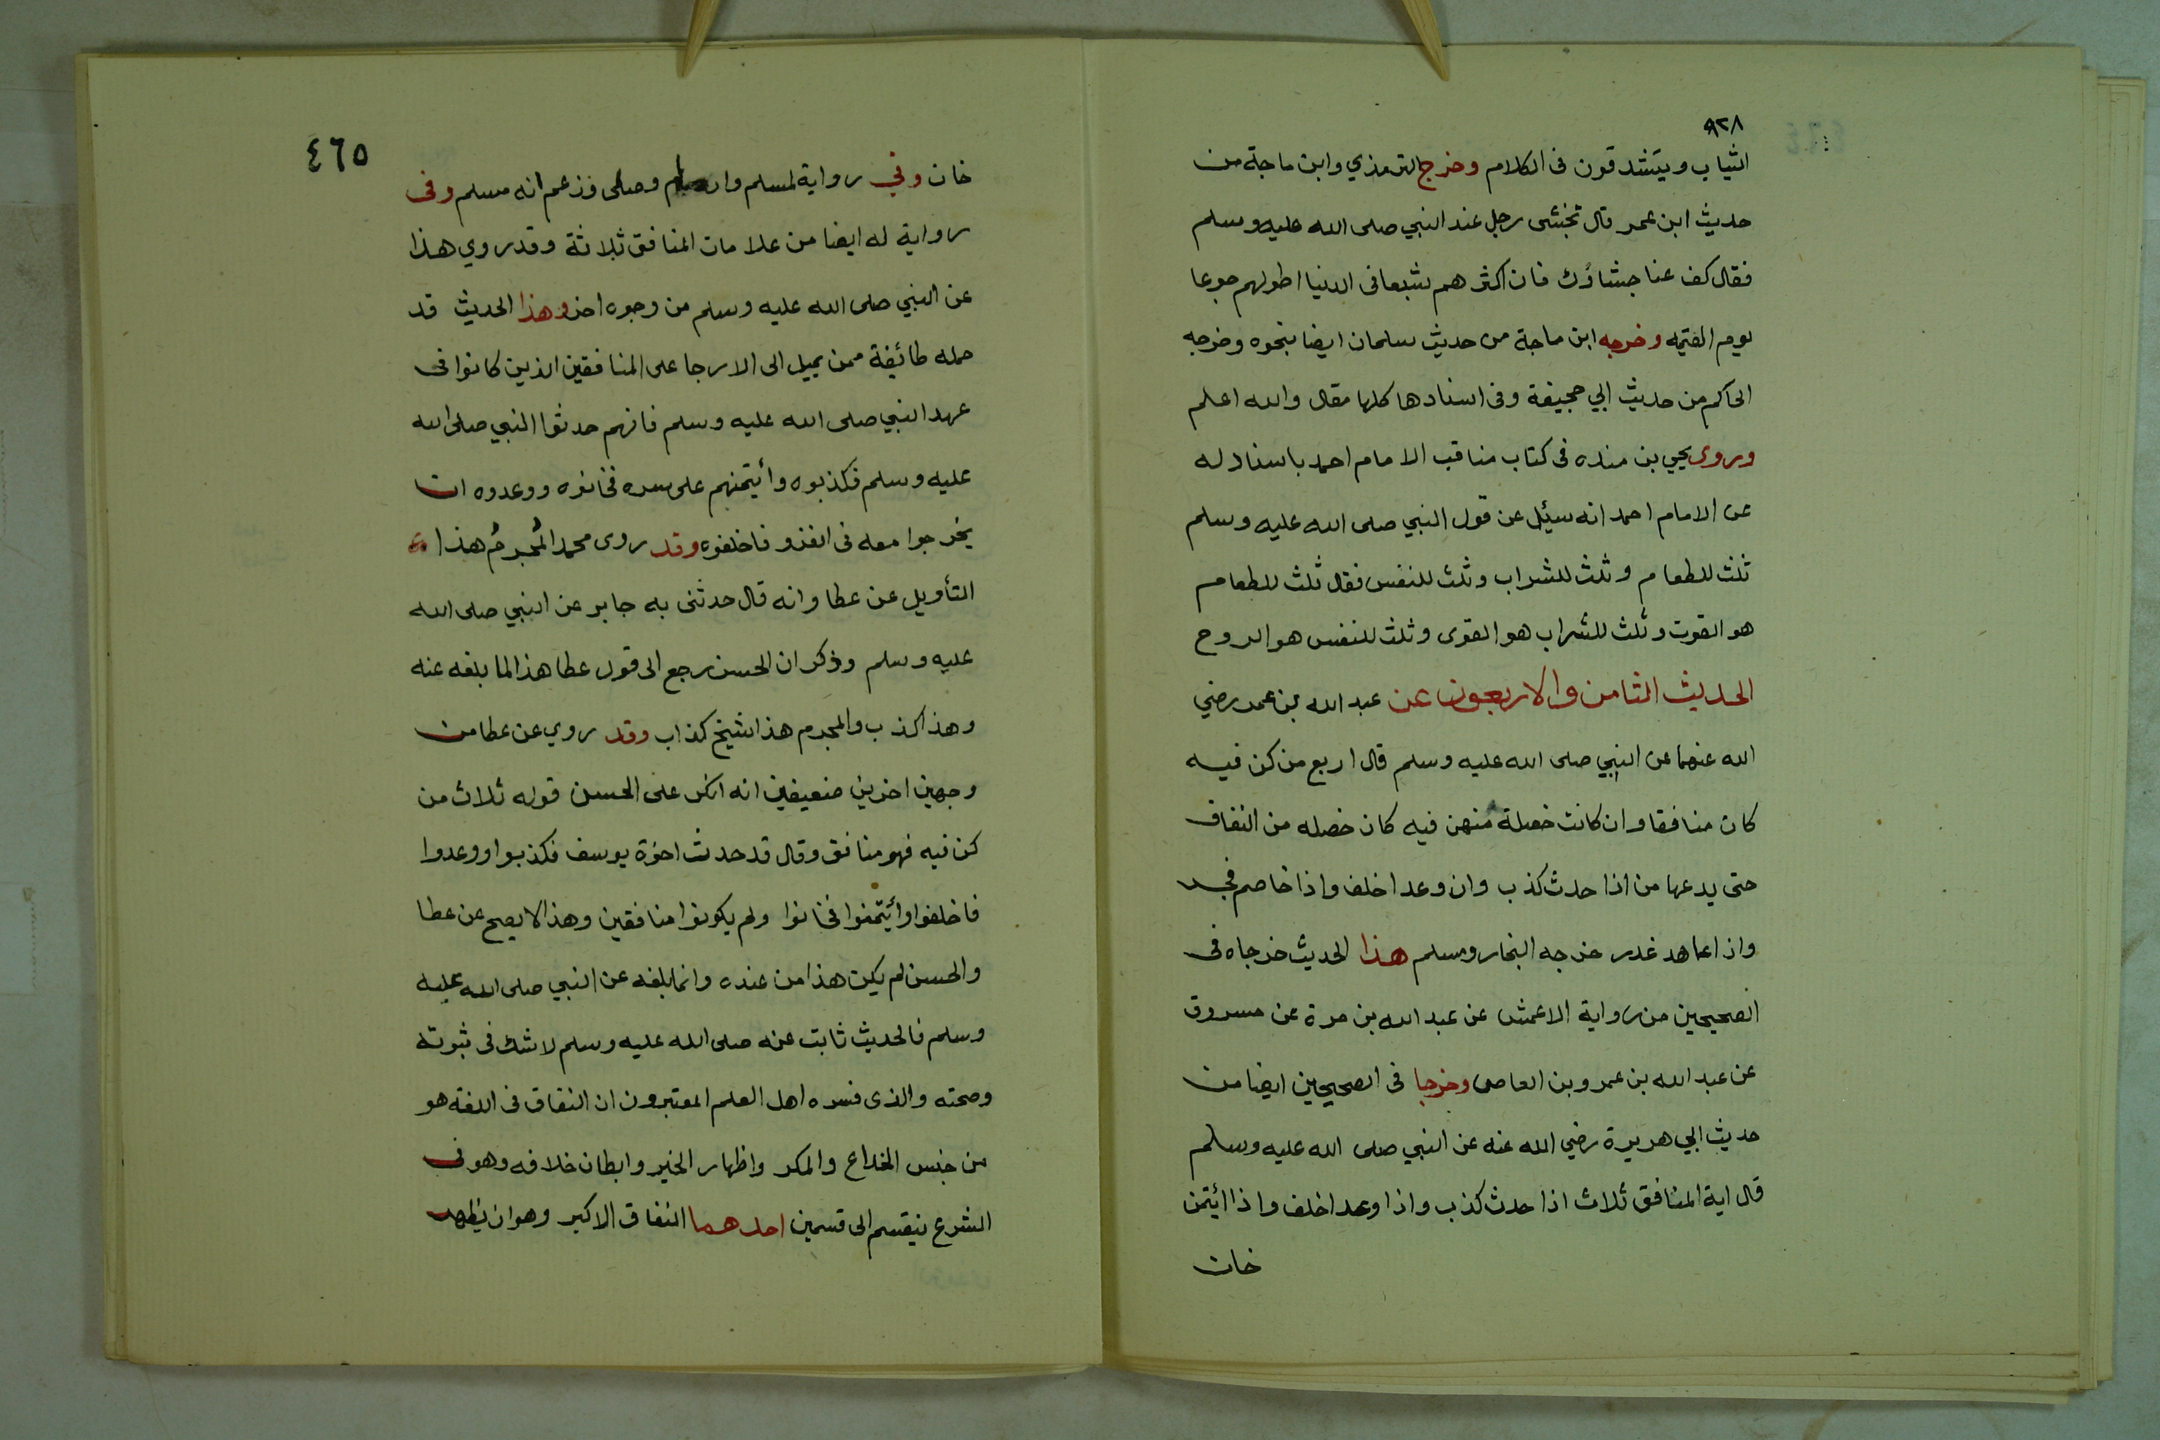 ٩٢٨
الثياب ويتشدقون فى الكلام وخرج الترمذي وابن ماجة من
حديث ابن عمر قال تجشى رجل عند النبي صلى الله عليه وسلم
فقال كف عنا جشاؤك فان اكثرهم شبعا فى الدنيا اطولهم جوعا
يوم القيمه وخرجه ابن ماجة من حديث سلمان ايضا بنحوه وخرجه
الحاكم من حديث ابي جحيفة وفى اسنادها كلها مقال والله اعلم
وروى يحيي بن منده فى كتاب مناقب الامام احمد باسناد له
عن الامام احمد انه سئيل عن قول النبي صلى الله عليه وسلم
ثلث للطعام وثلث للشراب وثلث للنفس فقال ثلث للطعام
هو القوت وثلث للشراب هو القوى وثلث للنفس هو الروح
الحديث الثامن والاربعون عن عبد الله بن عمر رضي
الله عنهما عن النبي صلى الله عليه وسلم قال اربع من كن فيه
كان منافقا وان كانت خصلة منهن فيه كان خصله من النفاق
حتى يدعها من اذا حدث كذب وان وعد اخلف واذا خاصم فجر
واذ اعاهد غدر خرجه البخار ومسلم هذا الحديث خرجاه فى
الصحيحين من رواية الاعمش عن عبد الله بن مرة عن مسروق
عن عبد الله بن عمر وبن العاصى وخرجا فى الصحيحين ايضا من
حديث ابي هريرة رضي الله عنه عن النبي صلى الله عليه وسلم
قال اية المنافق ثلاث اذا حدث كذب واذا وعد اخلف واذا ائيتمن
خان
٤٦٥
خان وفي رواية لمسلم وان صام وصلى وزعم انه مسلم وفى
رواية له ايضا من علامات المنافق ثلاثة وقد روي هذا
عن النبي صلى الله عليه وسلم من وجوه اخر وهذا الحديث قد
حمله طائيفة ممن يميل الى الارجا على المنافقين الذين كانوا فى
عهد النبي صلى الله عليه وسلم فانهم حدثوا النبي صلى الله
عليه وسلم فكذبوه وأيتمنهم على سره فخانوه ووعدوه ان
يخرجوا معه فى الغزو فاخلفوه وقد روى محمد المُحرمُ هذا
التأويل عن عطا وانه قال حدثنى به جابر عن النبي صلى الله
عليه وسلم وذكر ان الحسن رجع الى قول عطا هذا لما بلغه عنه
وهذا كذب والمجرم هذا شيخ كذاب وقد روي عن عطا من
وجهين اخرين ضعيفين انه انكر على الحسن قوله ثلاث من
كن فيه فهو منافق وقال قد حدث اخوة يوسف فكذبوا ووعدوا
فاخلفوا وأيتمنوا فخانوا ولم يكونوا منافقين وهذا لا يصح عن عطا
والحسن لم يكن هذا من عنده وانما بلغه عن النبي صلى الله عليه
وسلم فالحديث ثابت عنه صلى الله عليه وسلم لا شك فى ثبوته
وصحته والذى فسره اهل العلم المعتبرون ان النفاق فى اللغة هو
من جنس الخداع والمكر واظهار الخير وابطان خلافه وهو فى
الشرع ينقسم الى قسمين احدهما النفاق الاكبر وهو ان يظهر